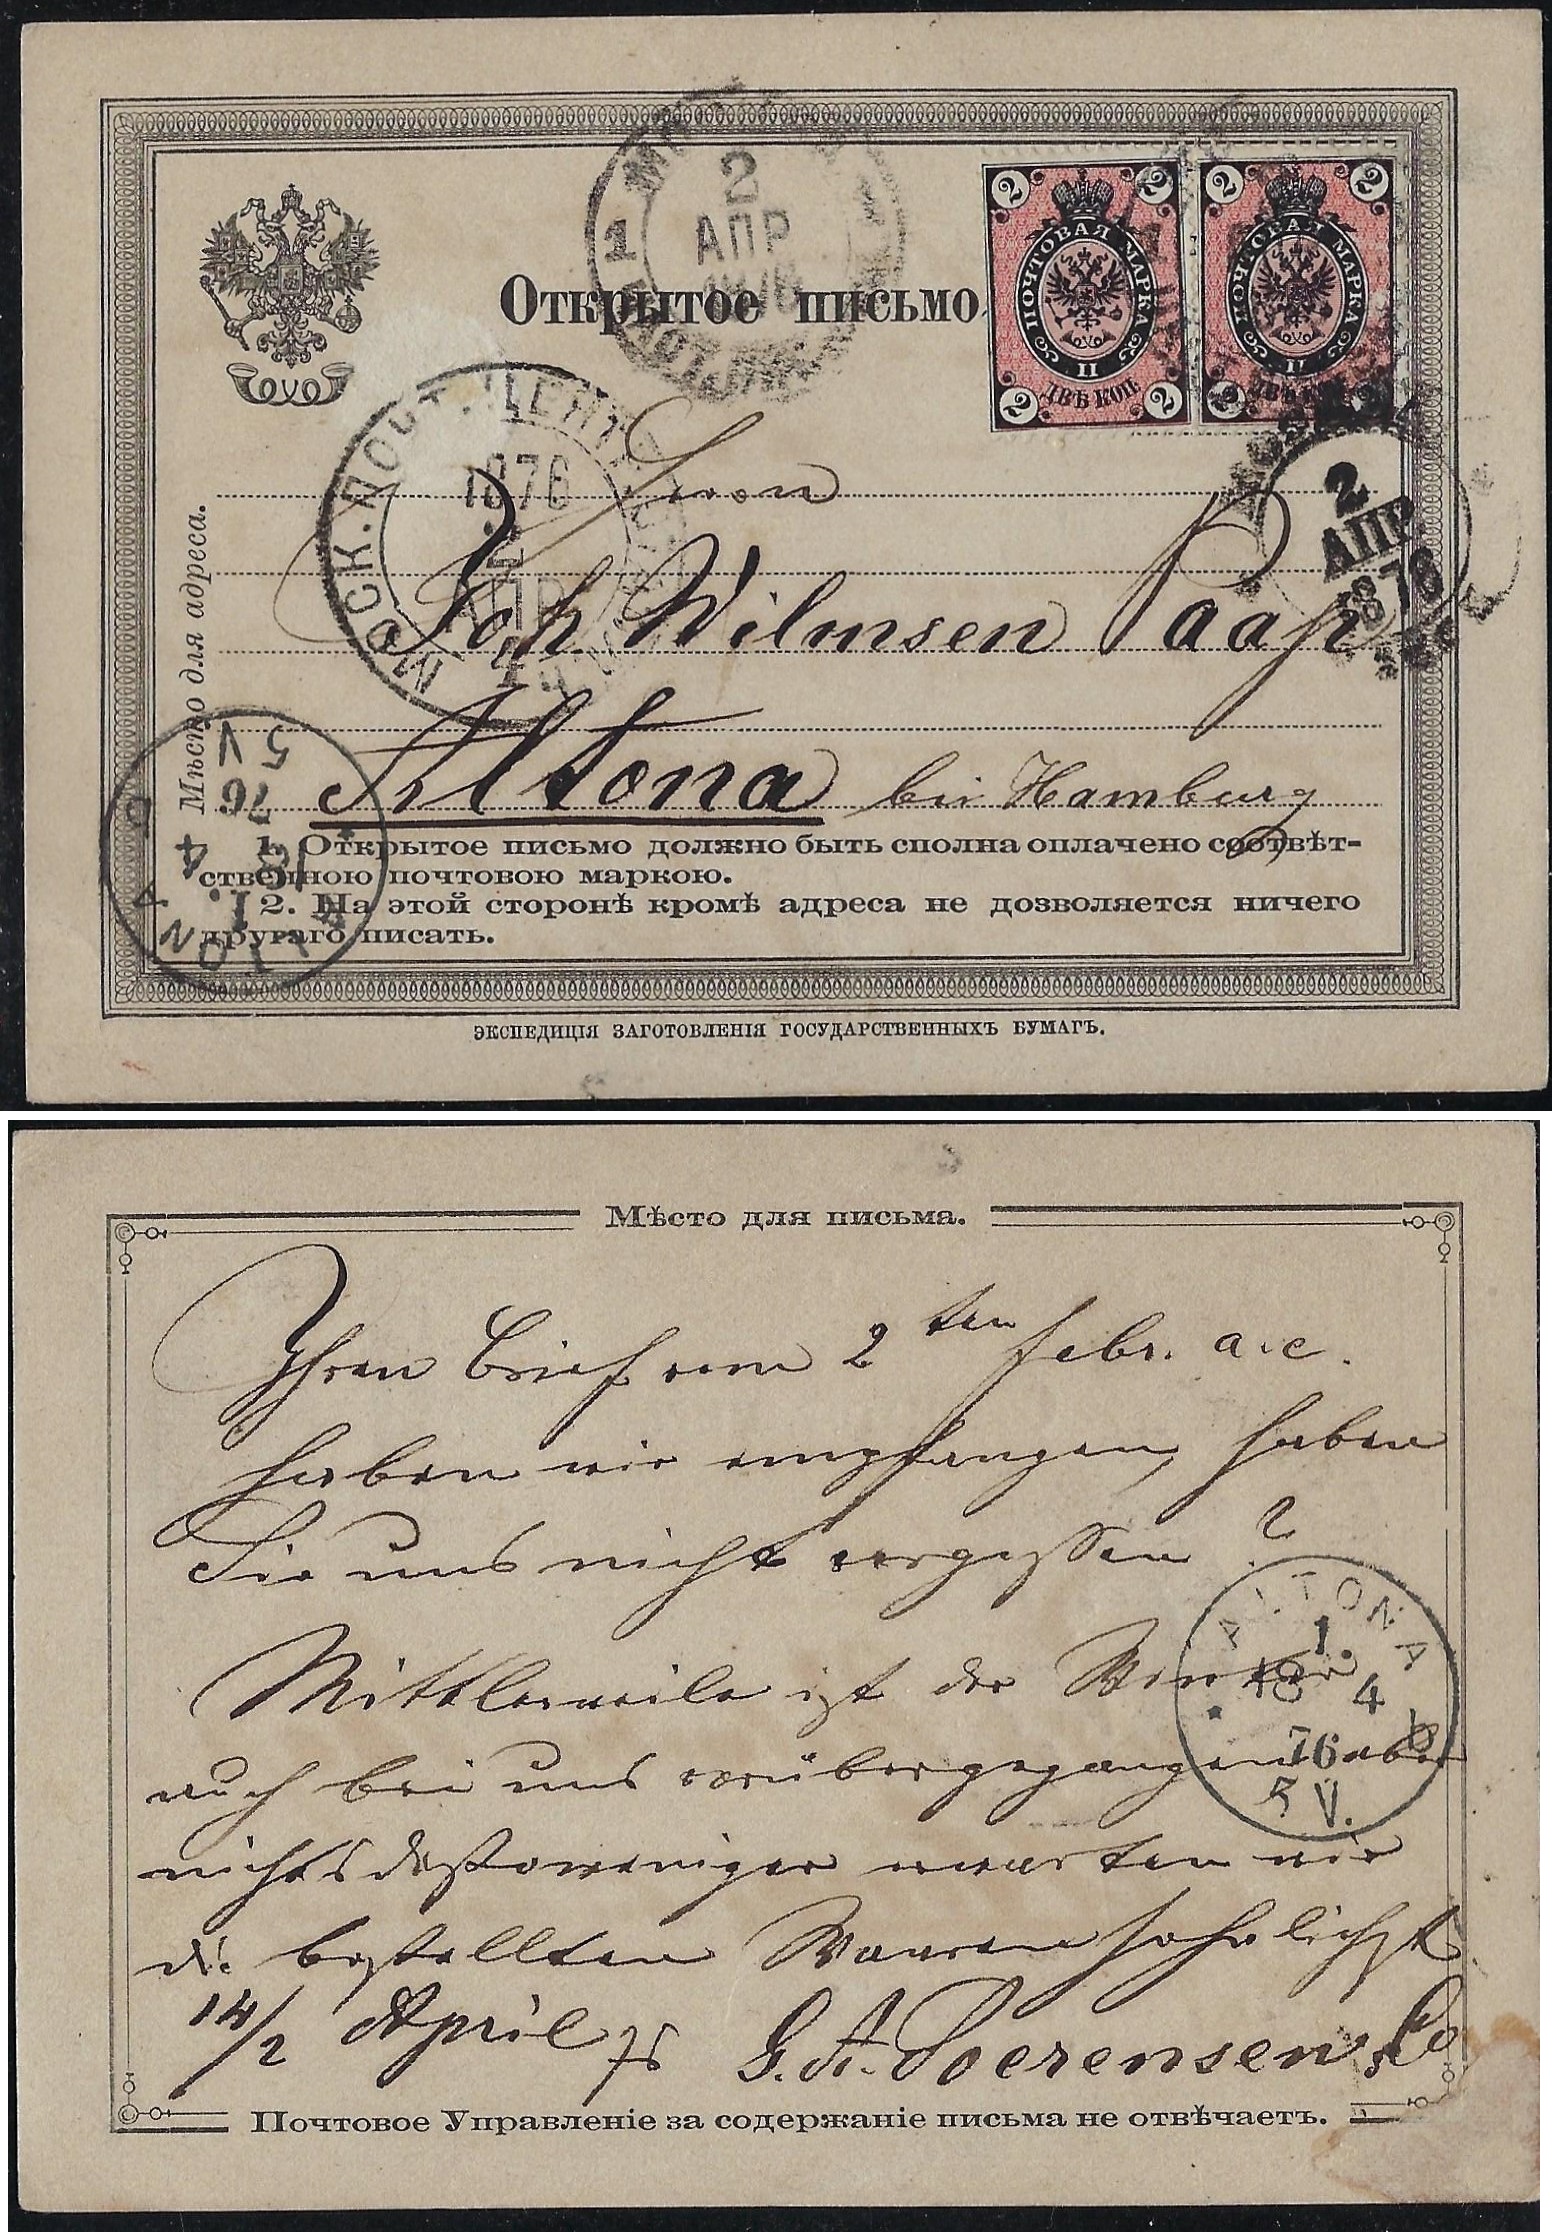 Открытое письмо.
2
АПР
1876
1
2 2
ПОЧТОВАЯ МАРКА
II
ДВѢ КОП.
2 2
2 2
ПОЧТОВАЯ МАРКА
II
ДВѢ КОП.
2 2
МОСК. ПОЧТ.
1876
2
АПР
2
АПР.
1876
Мѣсто для адреса.
Herrn
Joh. Wilmsen Paap
Altona bei Hamburg
ALTONA
18 4
76
5 V
1. Открытое письмо должно быть сполна оплачено соотвѣт-
ственною почтовою маркою.
2. На этой сторонѣ кромѣ адреса не дозволяется ничего
другаго писать.
ЭКСПЕДИЦІЯ ЗАГОТОВЛЕНІЯ ГОСУДАРСТВЕННЫХЪ БУМАГЪ.
Мѣсто для письма.
Ihren Brief vom 2ten Febr. a. c.
haben wir empfangen, haben
Sie uns nicht vergessen?
Mittlerweile ist der Winter
auch bei uns vorübergegangen aber
nichtsdestoweniger erwarten wir
die bestellten Waaren sehnlichst
14/2 April 76 G. A. Soerensen & Co
ALTONA
1.
18 4
76
5 V.
Почтовое Управленіе за содержаніе письма не отвѣчаетъ.